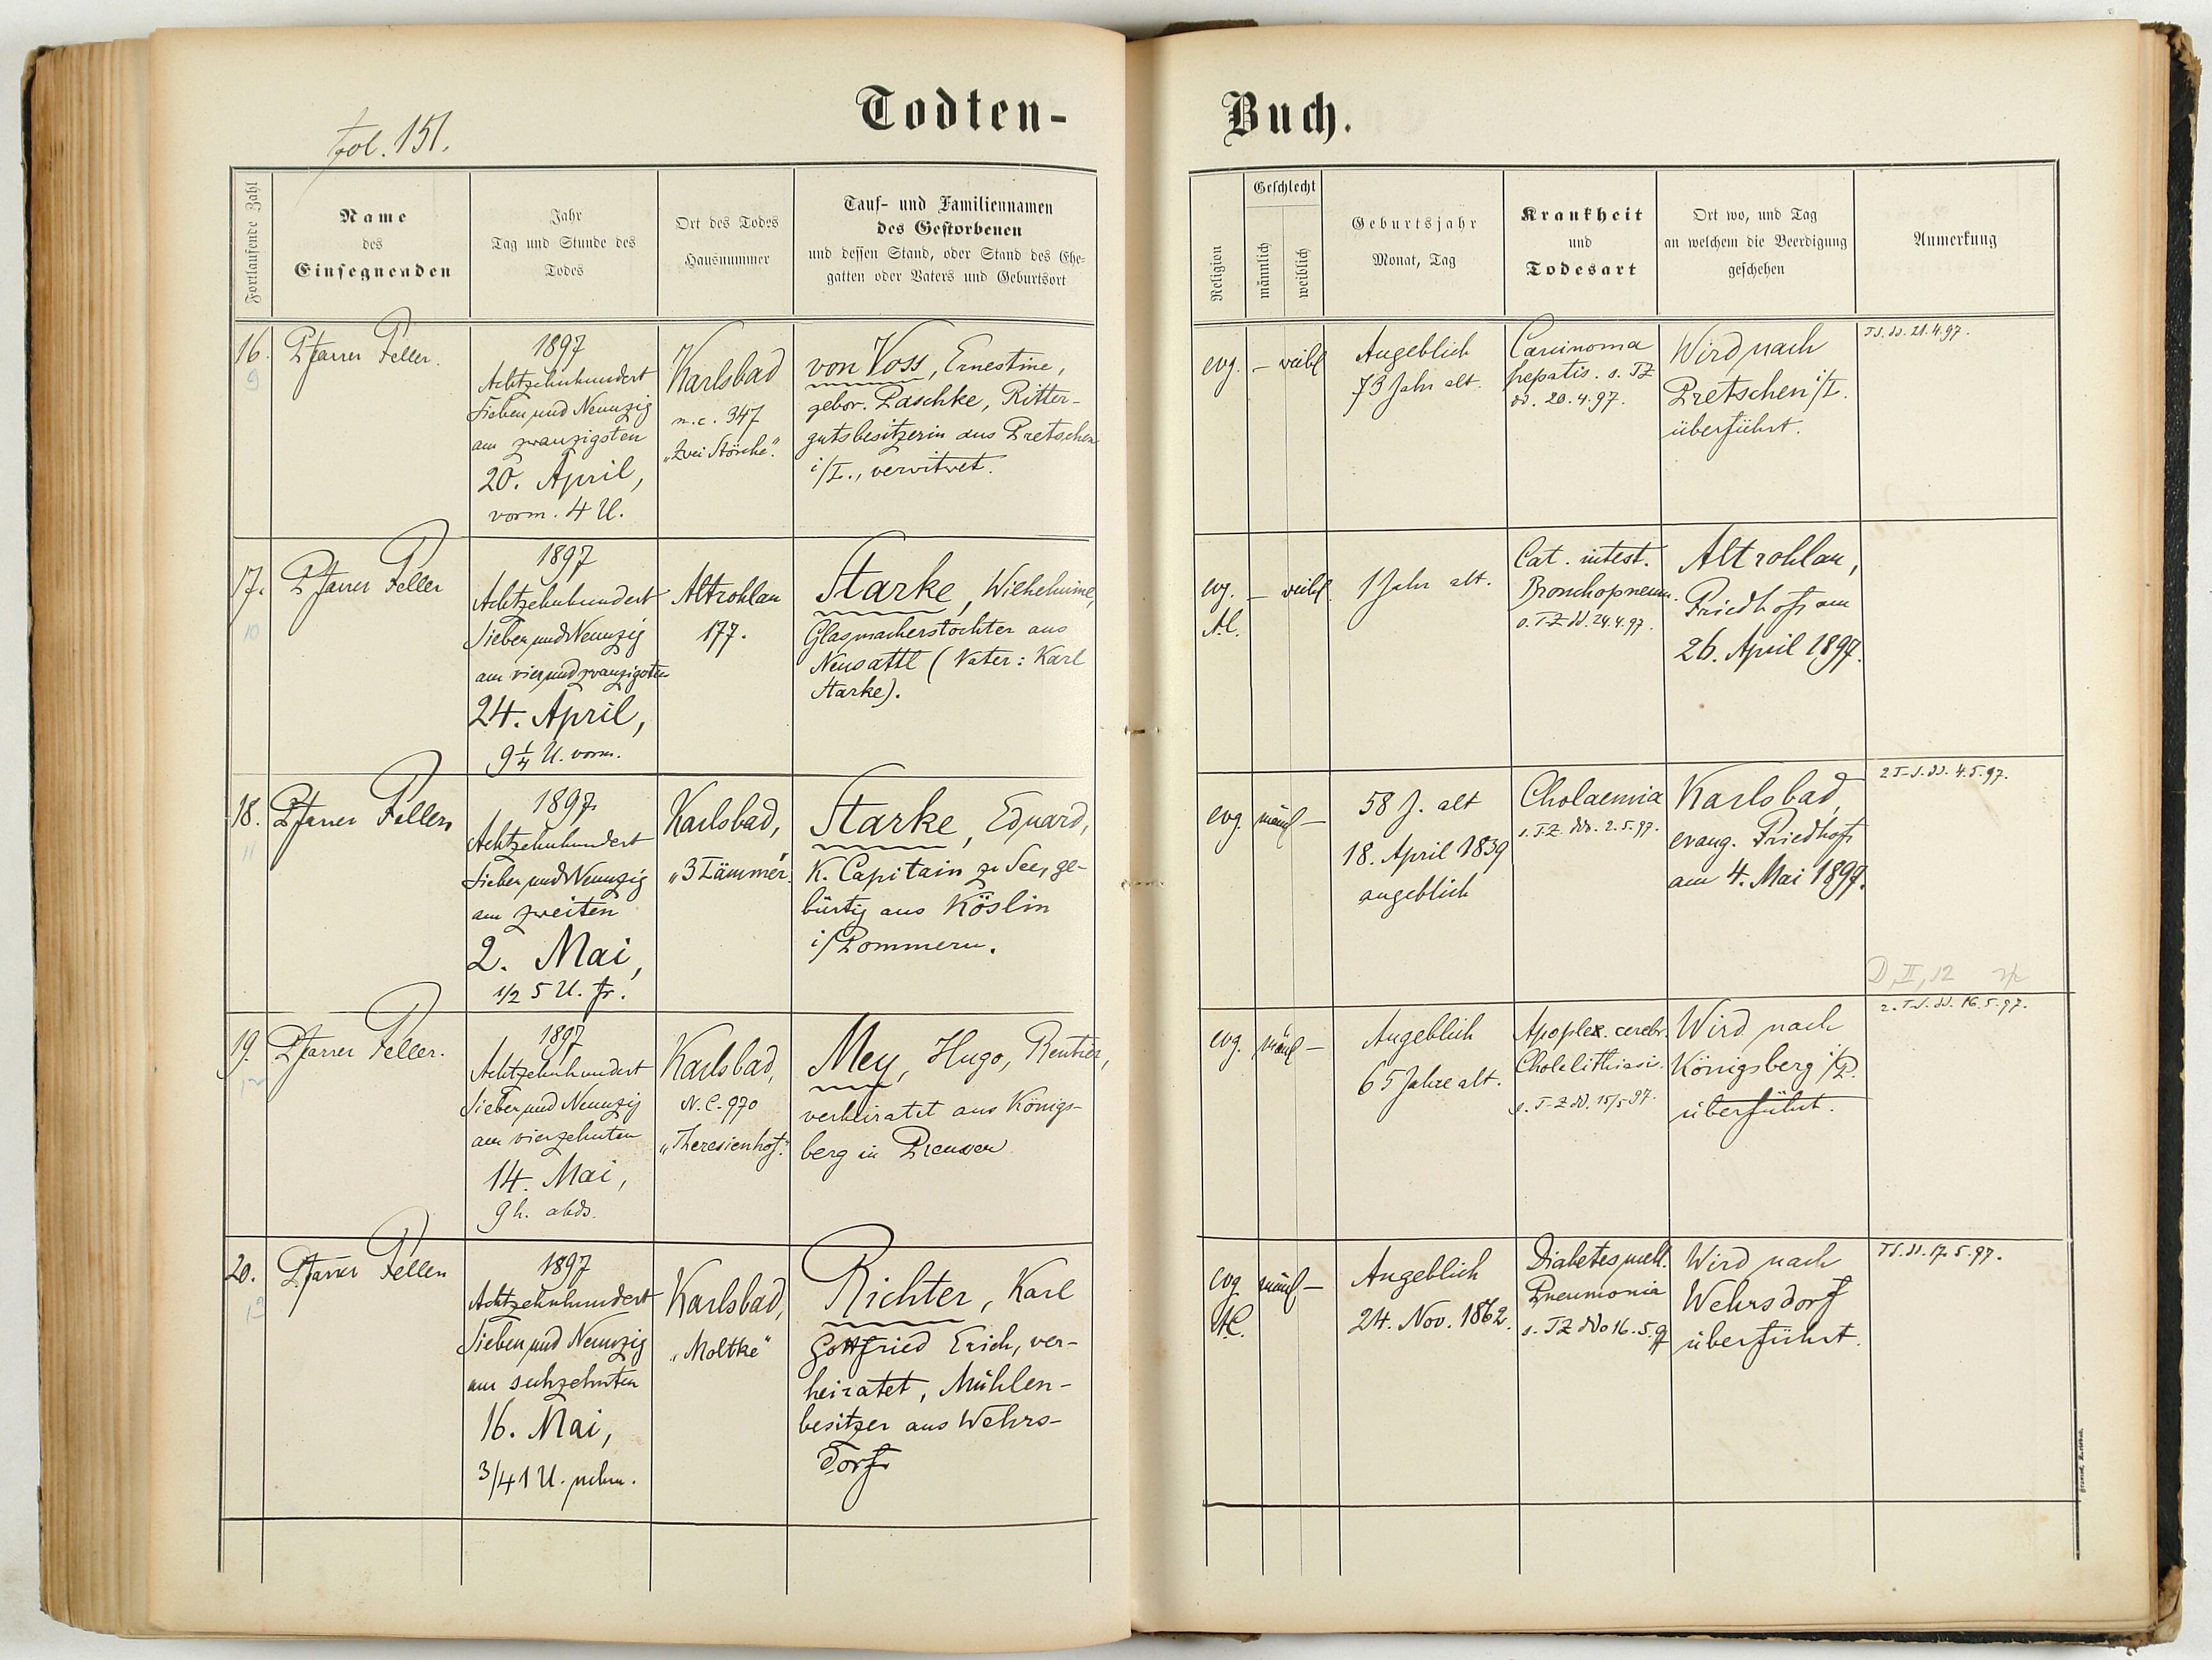 fol. 151.
Todten-Buch.
Fortlaufende Zahl
Name
des
Einsegnenden
Jahr
Tag und Stunde des
Todes
Ort des Todes
Hausnummer
Tauf- und Familiennamen
des Gestorbenen
und dessen Stand, oder Stand des Ehe-
gatten oder Vaters und Geburtsort
Religion
Geschlecht
männlich
weiblich
Geburtsjahr
Monat, Tag
Krankheit
und
Todesart
Ort wo, und Tag
an welchem die Beerdigung
geschehen
Anmerkung
16.
9
Pfarrer Feller.
1897
Achtzehnhundert
Sieben und Neunzig
am zwanzigsten
20. April,
vorm. 4 U.
Karlsbad
n.c. 347
"Zwei Störche."
von Voss, Ernestine,
gebor. Paschke, Ritter-
gutsbesitzerin aus Pretschen
i/L., verwitwet.
evg. — weibl
Angeblich
73 Jahr alt.
Carcinoma
hepatis. s. TZ
dd. 20.4.97.
Wird nach
Pretschen i/L.
überführt.
T.S. dd. 21.4.97.
17.
10
Pfarrer Feller
1897
Achtzehnhundert
Sieben und Neunzig
am vierundzwanzigsten
24. April,
9 1/4 U. vorm.
Altrohlau
177.
Starke, Wilhelmine,
Glasmacherstochter aus
Neusattl (Vater: Karl
Starke).
evg. — weibl
A.C.
1 Jahr alt.
Cat. intest.
Bronchopneum.
s. T-Z dd. 24.4.97.
Altrohlau,
Friedhof am
26. April 1897.
18.
11
Pfarrer Feller
1897
Achtzehnhundert
Sieben und Neunzig
am zweiten
2. Mai,
1/2 5 U. fr.
Karlsbad,
"3 Lämmer".
Starke, Eduard,
K. Capitain zu See, ge-
bürtig aus Köslin
i/Pommern.
evg. männl —
58 J. alt
18. April 1839
angeblich
Cholaemia
s. T.Z. ddo. 2.5.97.
Karlsbad,
evang. Friedhof
am 4. Mai 1897.
2 T-S. dd. 4.5.97.
D, II, 12
19.
12
Pfarrer Feller.
1897
Achtzehnhundert
Sieben und Neunzig
am vierzehnten
14. Mai,
9 h. abds.
Karlsbad,
N.C. 970
"Theresienhof."
Mey, Hugo, Rentier,
verheiratet aus Königs-
berg in Preussen
evg. männl —
Angeblich
65 Jahre alt.
Apoplex. cerebr.
Cholelithiasis.
s. T-Z dd. 15/5 97.
Wird nach
Königsberg i/P.
überführt.
2. T.S. dd. 16.5.97.
20.
13
Pfarrer Feller
1897
Achtzehnhundert
Sieben und Neunzig
am sechzehnten
16. Mai,
3/4 1 U. nchm.
Karlsbad,
"Moltke"
Richter, Karl
Gottfried Erich, ver-
heiratet, Mühlen-
besitzer aus Wehrs-
dorf
evg männl —
A.C.
Angeblich
24. Nov. 1862.
Diabetes mell.
Pneumonia
s. TZ ddo 16.5.97
Wird nach
Wehrsdorf
überführt.
TS. dd. 17.5.97.